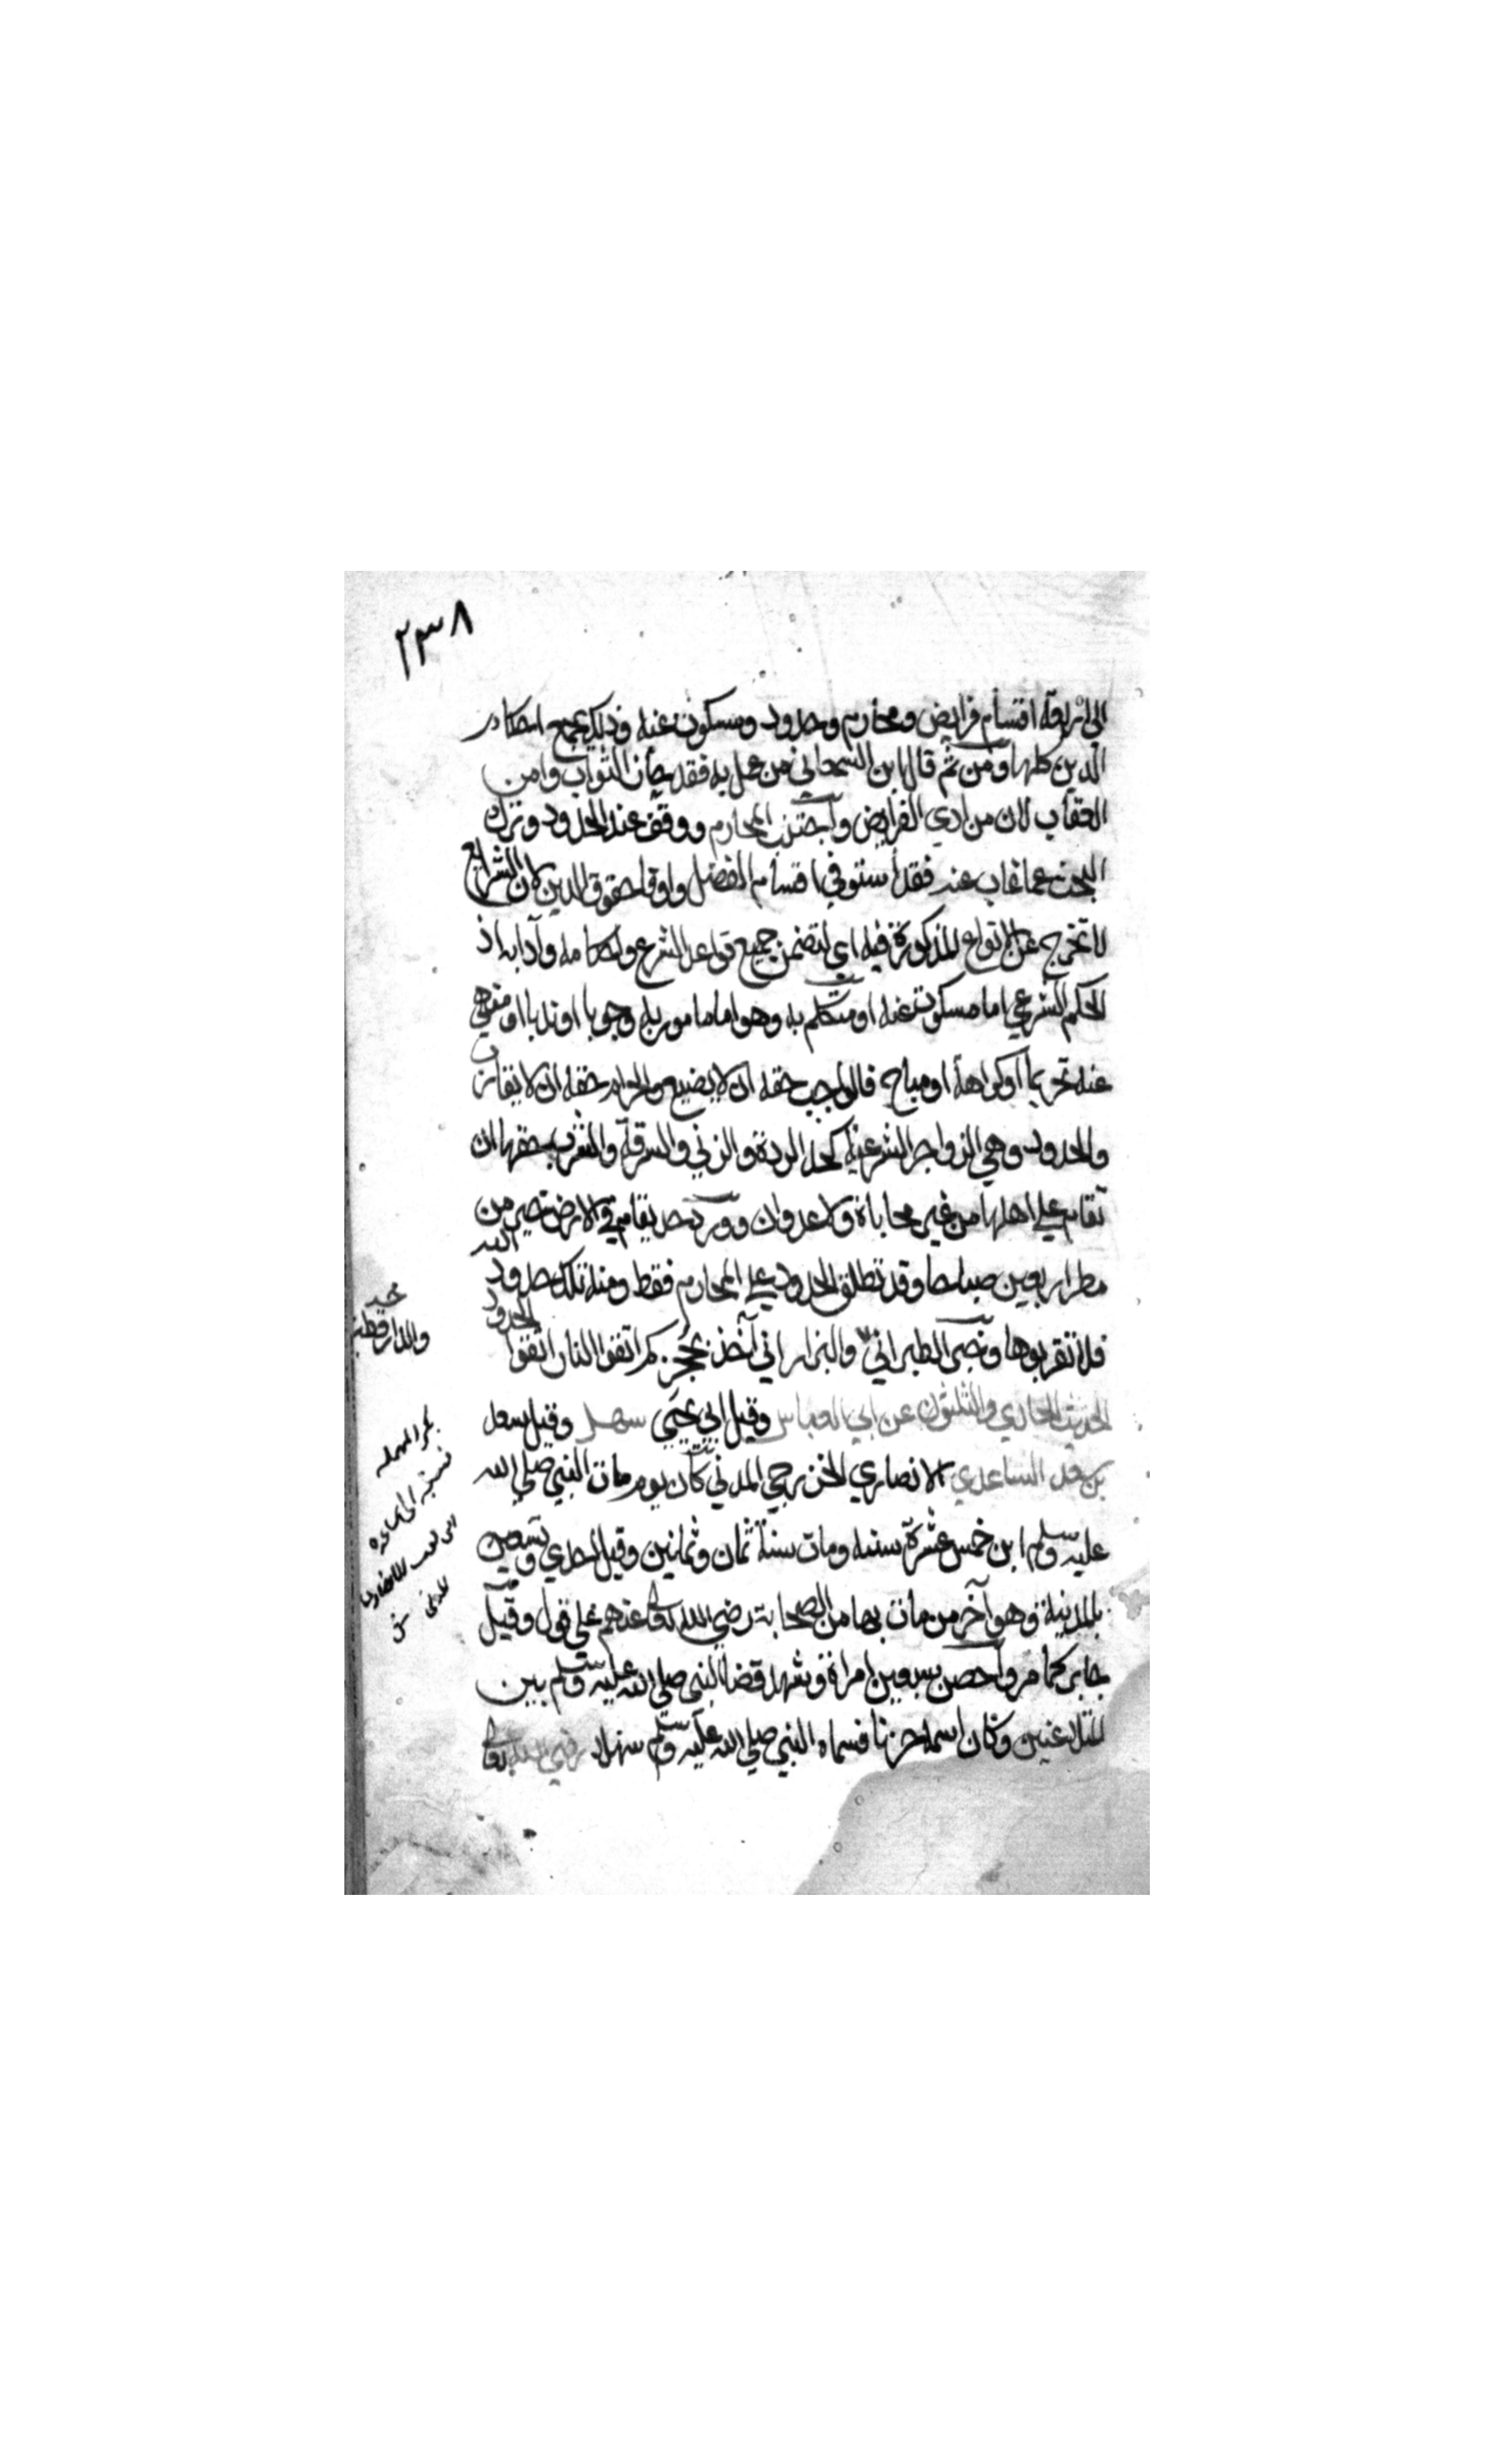 ٢٣٨
الى اربعة اقسام فرايض ومحارم وحدود ومسكوت عنه وذلك يجمع احكام
الدين كلها ومن ثم قال ابن السمعاني من عمل به فقد حاز الثواب وامن
العقاب لان من ادي الفرايض واجتنب المحارم ووقف عند الحدود وترك
البحث عما غاب عنه فقد استوفي اقسام الفضل واوفا حقوق الدين لان الشرايع
لا تخرج عن الانواع المذكورة فيه اي لتضمن جميع قواعد الشرع واحكامه وآدابه اذ
الحكم الشرعي اما مسكوت عنه او متكلم به وهو اما مامور به وجوبا او ندبا او منهي
عنه تحريما او كراهة او مباح فالواجب حقه ان لا يضيع والحرام حقه ان لا يقارب
والحدود وهي الزواجر الشرعية كحد الردة والزني والسرقة والشرب حقها ان
تقام علي اهلها من غير محاباة ولا عدوان وورد حد يقام في الارض خير من
مطر اربعين صباحا وقد تطلق الحدود علي المحارم فقط ومنه تلك حدود الله
فلا تقربوها وخبر الطبراني والبزار اني آخذ بحجزكم اتقوا النار اتقوا الحدود
الحديث الحادي والثلثون عن ابي العباس وقيل ابي يحيي سهل وقيل سعد
بن سعد الساعدي الانصاري الخزرجي المدني كان يوم مات النبي صلي الله
عليه وسلم ابن خمس عشرة سنة ومات سنة ثمان وثمانين وقيل احدي وتسعين
بالمدينة وهو آخر من مات بها من الصحابة رضي الله تعالى عنهم علي قول وقيل
جابر كما مر واحصن سبعين امراة وشهد قضا النبي صلي الله عليه وسلم بين
المتلاعنين وكان اسمه حزنا فسماه النبي صلي الله عليه وسلم سهلا رضي الله تعالى
والدارقطني
المهمله
نسبة الى